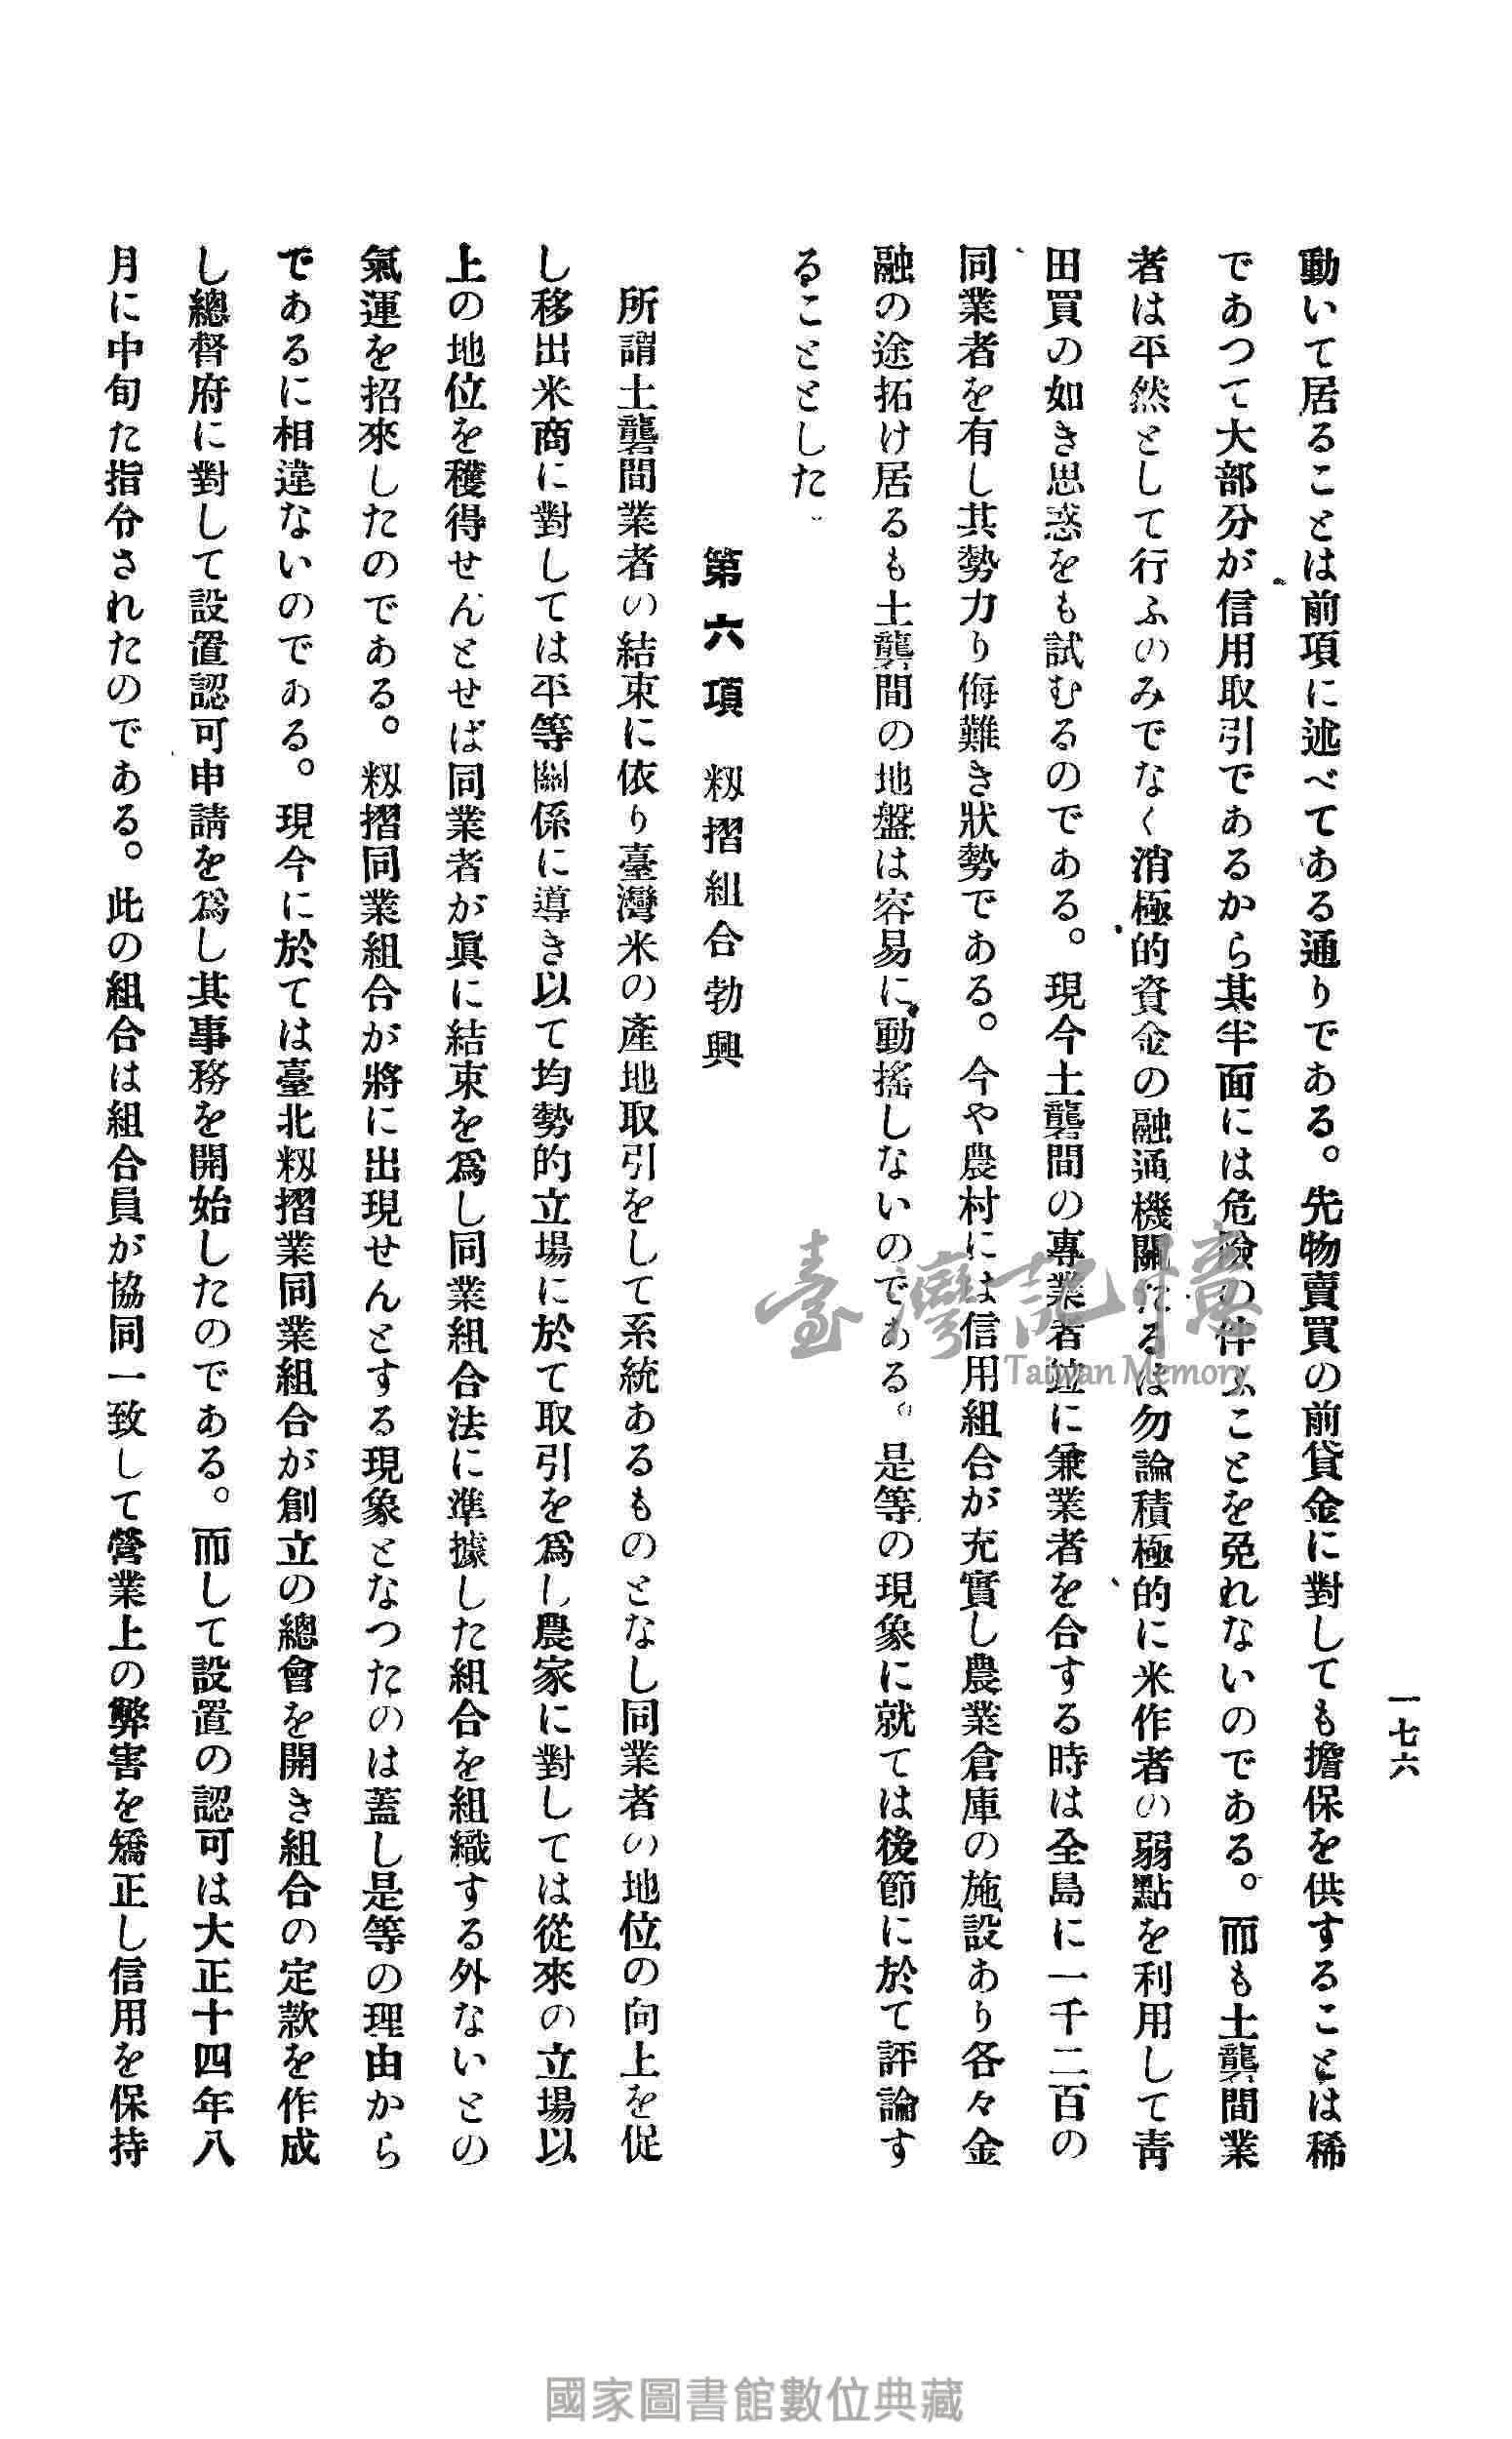 一七六
動いて居ることは前項に述べてある通りである。先物賣買の前貸金に對しても擔保を供することは稀
であつて大部分が信用取引であるから其半面には危險の伴ふことを免れないのである。而も土礱間業
者は平然として行ふのみでなく消極的資金の融通機關たるは勿論積極的に米作者の弱點を利用して靑
田買の如き思惑をも試むるのである。現今土礱間の專業者竝に兼業者を合する時は全島に一千二百の
同業者を有し其勢力り侮難き狀勢である。今や農村には信用組合が充實し農業倉庫の施設あり各々金
融の途拓け居るも土礱間の地盤は容易に動搖しないのである。是等の現象に就ては後節に於て評論す
ることとした。
第六項　籾摺組合勃興
所謂土礱間業者の結束に依り臺灣米の產地取引をして系統あるものとなし同業者の地位の向上を促
し移出米商に對しては平等關係に導き以て均勢的立場に於て取引を爲し農家に對しては從來の立場以
上の地位を穫得せんとせば同業者が眞に結束を爲し同業組合法に準據した組合を組織する外ないとの
氣運を招來したのである。籾摺同業組合が將に出現せんとする現象となつたのは蓋し是等の理由から
であるに相違ないのである。現今に於ては臺北籾摺業同業組合が創立の總會を開き組合の定款を作成
し總督府に對して設置認可申請を爲し其事務を開始したのである。而して設置の認可は大正十四年八
月に中旬た指令されたのである。此の組合は組合員が協同一致して營業上の弊害を矯正し信用を保持
臺灣記憶
Taiwan Memory
國家圖書館數位典藏